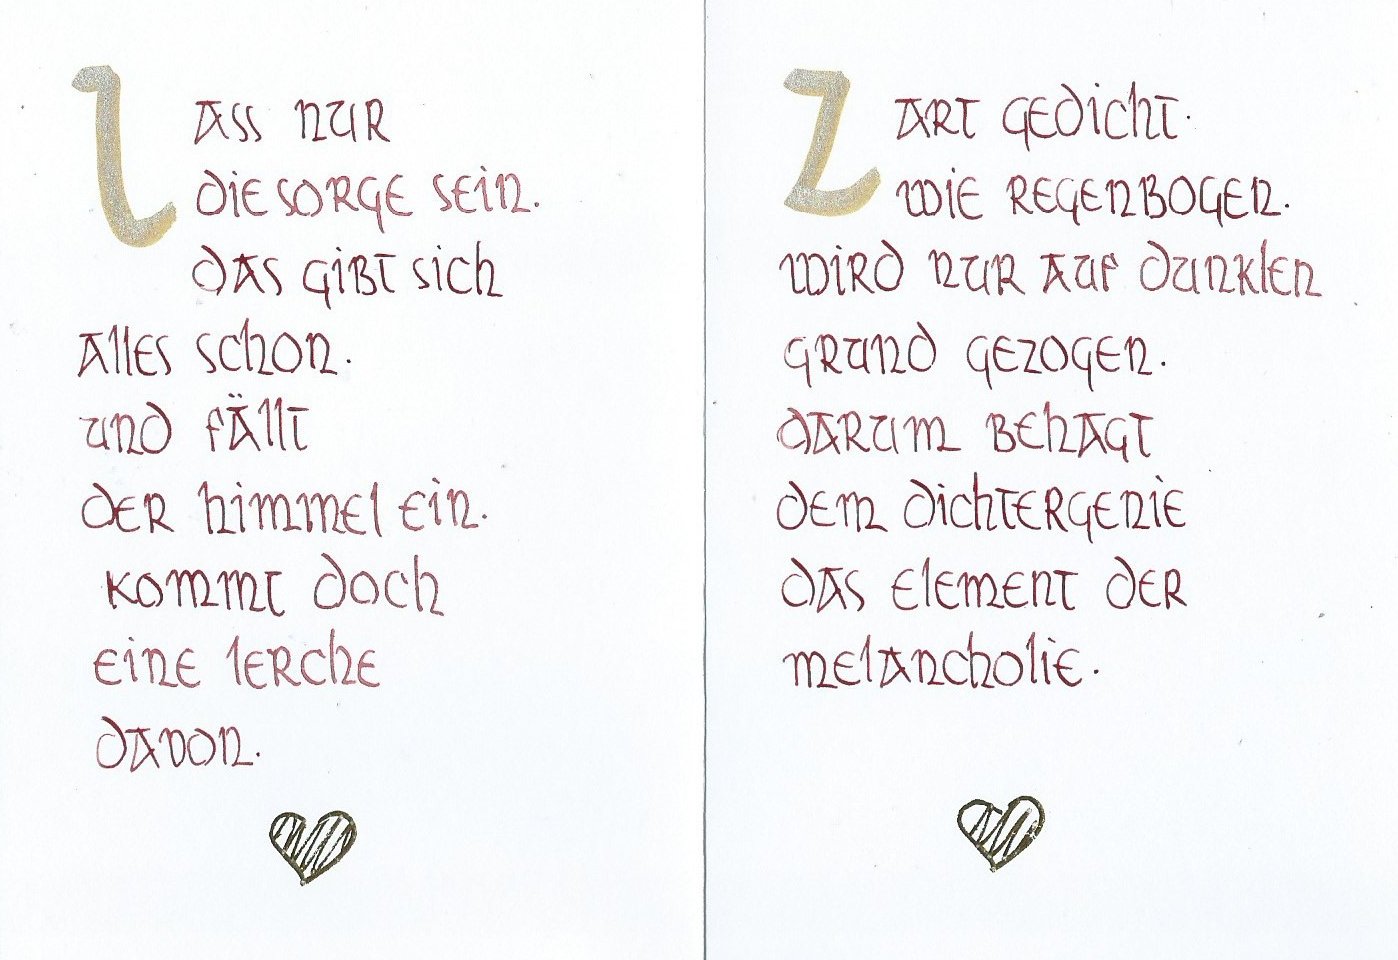 lass nur
die sorge sein.
das gibt sich
alles schon.
und fällt
der himmel ein.
kommt doch
eine lerche
davon.
zart gedicht.
wie regenbogen.
wird nur auf dunklen
grund gezogen.
darum behagt
dem dichtergenie
das element der
melancholie.